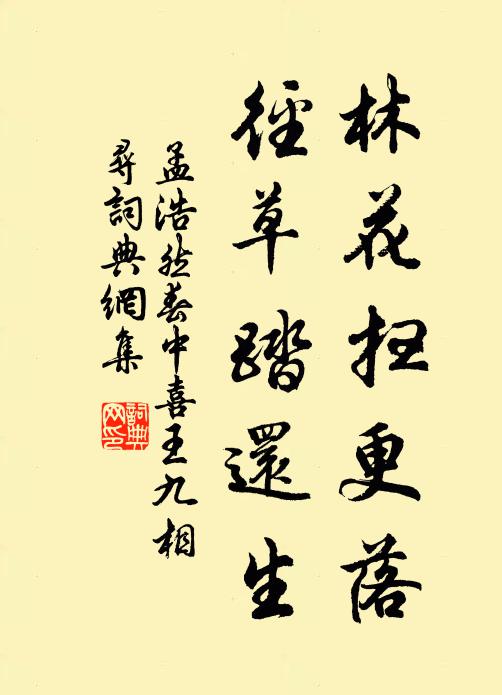 林花扫更落
徑草踏還生
孟浩然春中喜王九相
尋詞典網集
詞典
网印